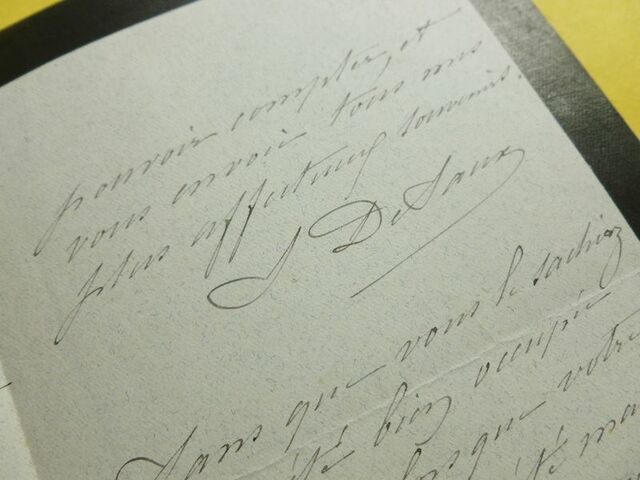 pouvoir compter, et
vous envoie tous nos
plus affectueux souvenirs.
S. De Saux
Sans que vous le sachiez
occupé
votre